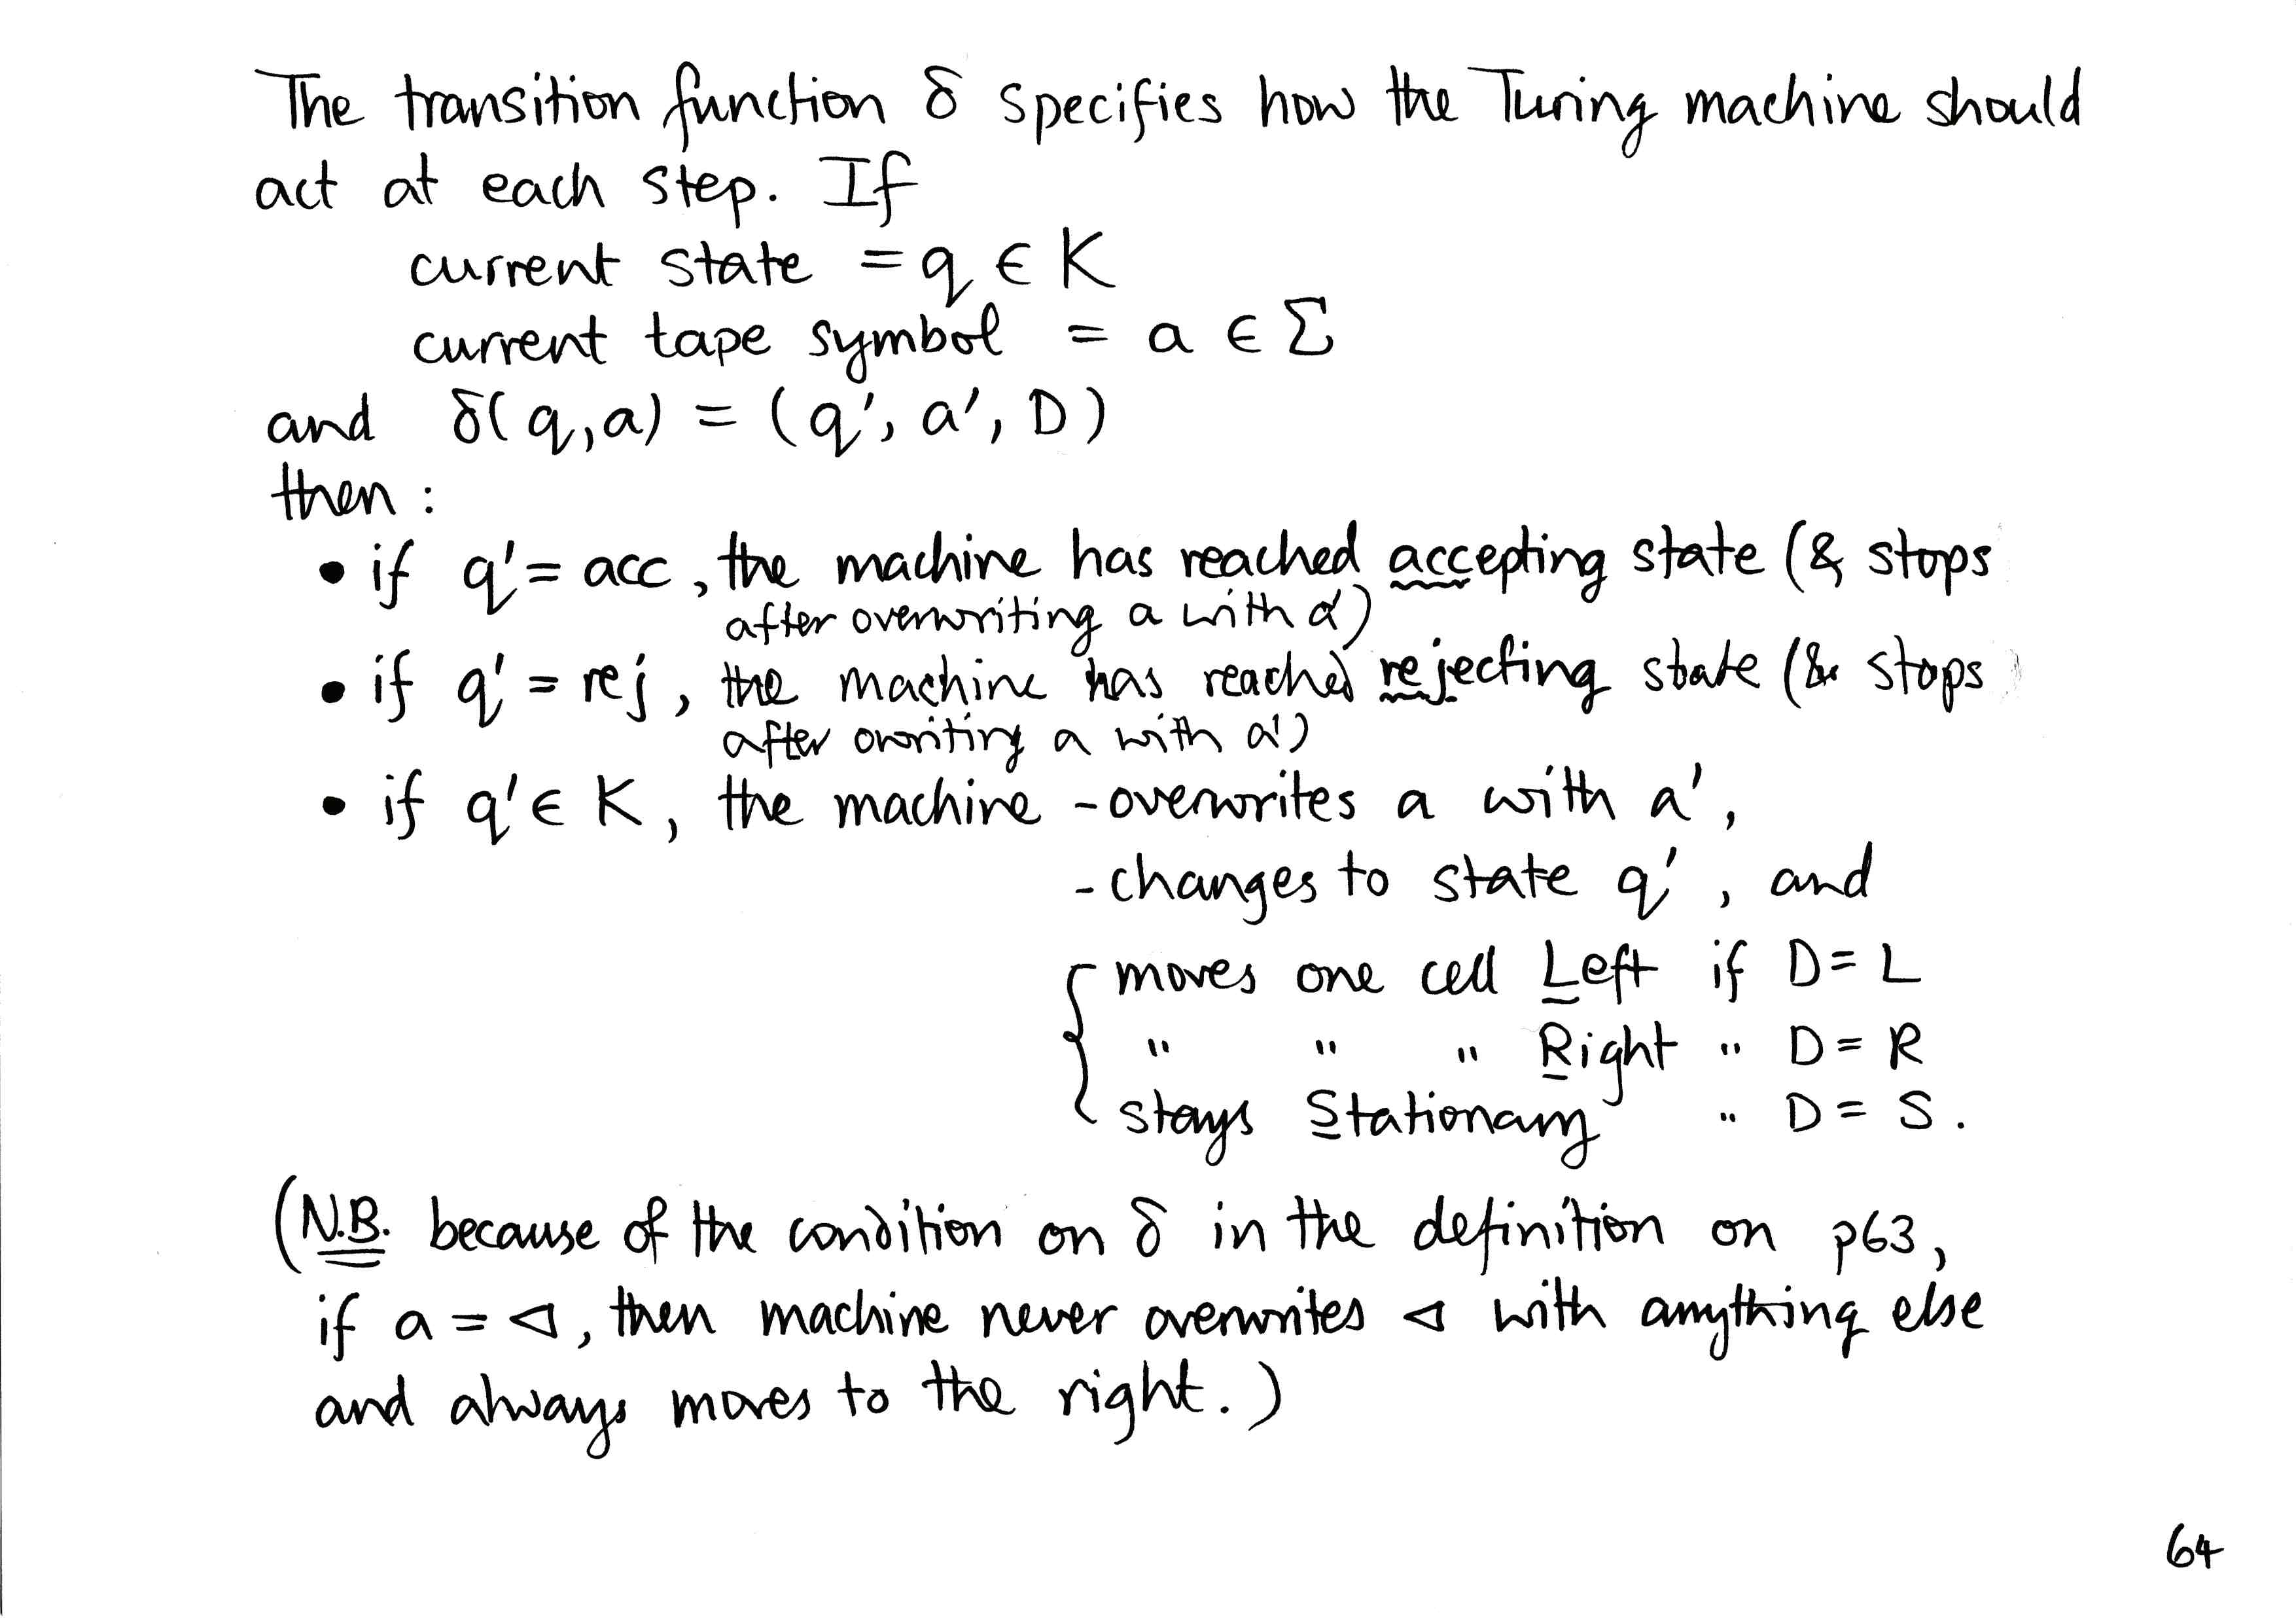 The transition function δ specifies how the Turing machine should
act at each step. If
current state = q ∈ K
current tape symbol = a ∈ Σ
and δ(q,a) = (q', a', D)
then :
• if q' = acc, the machine has reached accepting state (& stops
after overwriting a with a')
• if q' = rej, the machine has reached rejecting state (& stops
after owriting a with a')
• if q' ∈ K, the machine - overwrites a with a',
- changes to state q', and
{ moves one cell Left if D = L
" " " Right " D = R
stays Stationary " D = S.
(N.B. because of the condition on δ in the definition on p63,
if a = ⊲, then machine never overwrites ⊲ with anything else
and always moves to the right.)
64